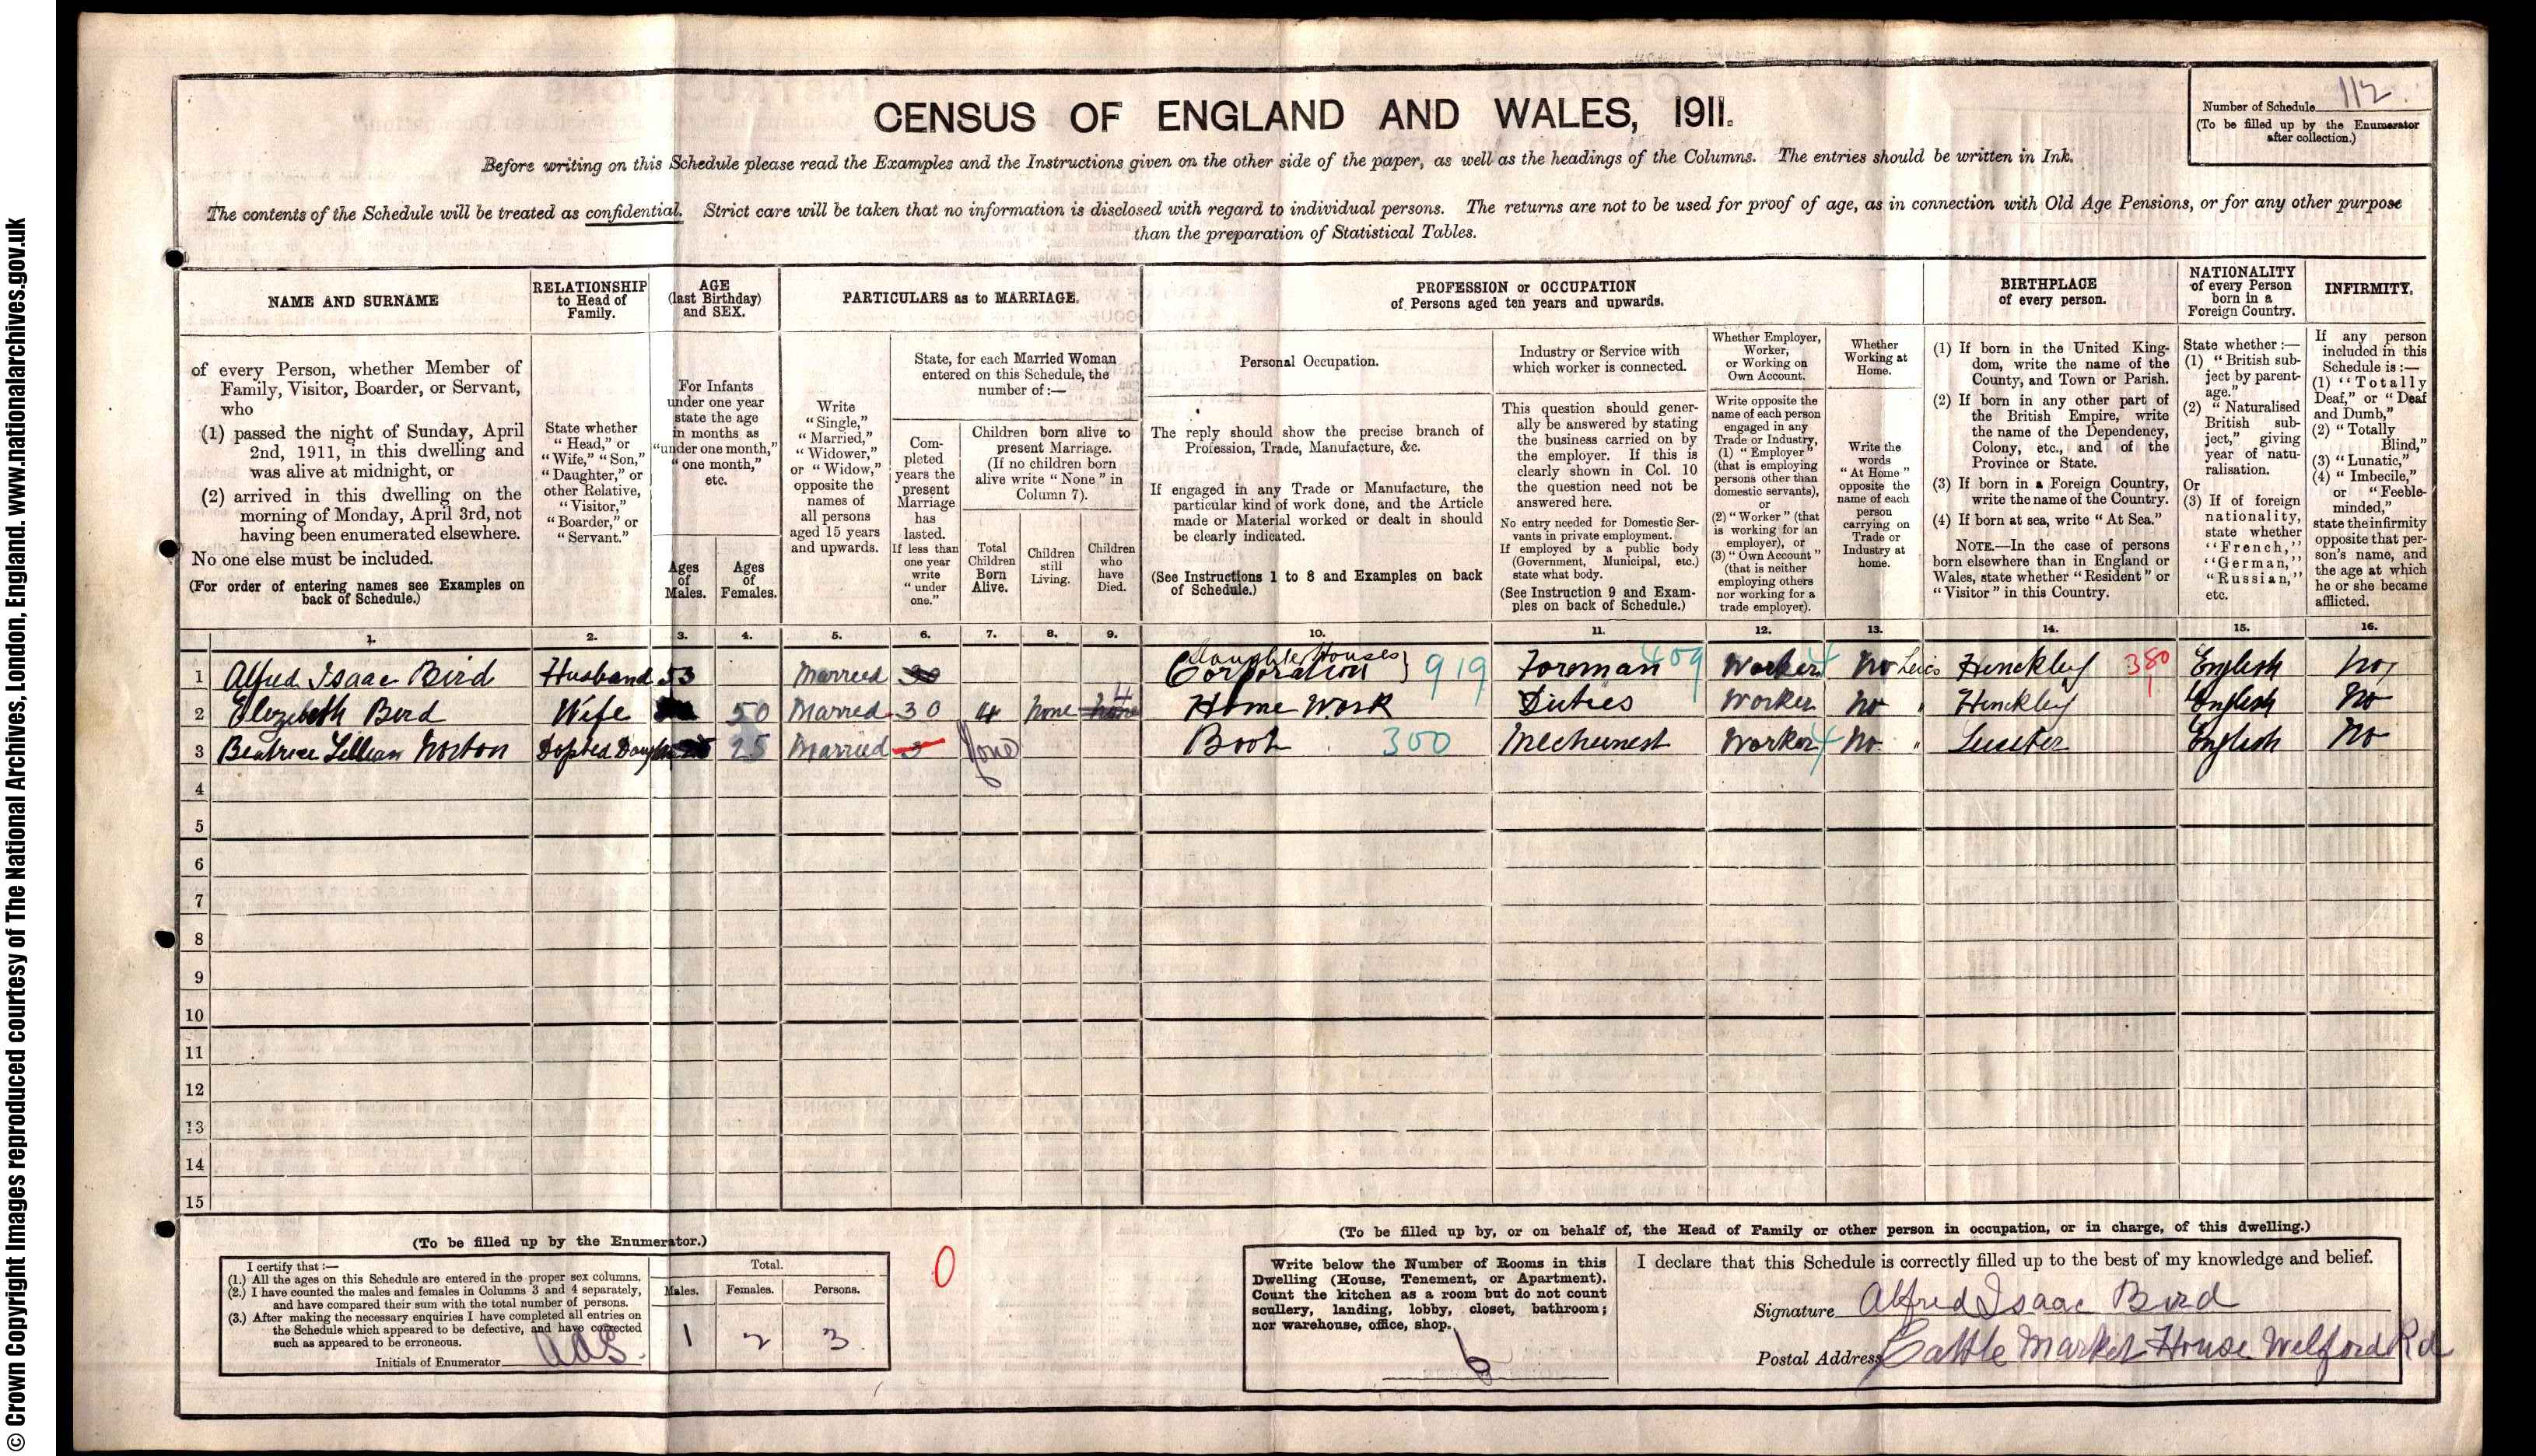 © Crown Copyright Images reproduced courtesy of The National Archives, London, England. www.nationalarchives.gov.uk
CENSUS OF ENGLAND AND WALES, 1911.
Number of Schedule 112
(To be filled up by the Enumerator after collection.)
Before writing on this Schedule please read the Examples and the Instructions given on the other side of the paper, as well as the headings of the Columns. The entries should be written in Ink.
The contents of the Schedule will be treated as confidential. Strict care will be taken that no information is disclosed with regard to individual persons. The returns are not to be used for proof of age, as in connection with Old Age Pensions, or for any other purpose
than the preparation of Statistical Tables.
NAME AND SURNAME
of every Person, whether Member of
Family, Visitor, Boarder, or Servant,
who
(1) passed the night of Sunday, April
2nd, 1911, in this dwelling and
was alive at midnight, or
(2) arrived in this dwelling on the
morning of Monday, April 3rd, not
having been enumerated elsewhere.
No one else must be included.
(For order of entering names see Examples on
back of Schedule.)
RELATIONSHIP
to Head of
Family.
State whether
"Head," or
"Wife," "Son,"
"Daughter," or
other Relative,
"Visitor,"
"Boarder," or
"Servant."
AGE
(last Birthday)
and SEX.
For Infants
under one year
state the age
in months as
"under one month,"
"one month,"
etc.
Ages
of
Males.
Ages
of
Females.
PARTICULARS as to MARRIAGE.
Write
"Single,"
"Married,"
"Widower,"
or "Widow,"
opposite the
names of
all persons
aged 15 years
and upwards.
State, for each Married Woman
entered on this Schedule, the
number of:—
Com-
pleted
years the
present
Marriage
has
lasted.
If less than
one year
write
"under
one."
Children born alive to
present Marriage.
(If no children born
alive write "None" in
Column 7).
Total
Children
Born
Alive.
Children
still
Living.
Children
who
have
Died.
PROFESSION or OCCUPATION
of Persons aged ten years and upwards.
Personal Occupation.
The reply should show the precise branch of
Profession, Trade, Manufacture, &c.
If engaged in any Trade or Manufacture, the
particular kind of work done, and the Article
made or Material worked or dealt in should
be clearly indicated.
(See Instructions 1 to 8 and Examples on back
of Schedule.)
Industry or Service with
which worker is connected.
This question should gener-
ally be answered by stating
the business carried on by
the employer. If this is
clearly shown in Col. 10
the question need not be
answered here.
No entry needed for Domestic Ser-
vants in private employment.
If employed by a public body
(Government, Municipal, etc.)
state what body.
(See Instruction 9 and Exam-
ples on back of Schedule.)
Whether Employer,
Worker,
or Working on
Own Account.
Write opposite the
name of each person
engaged in any
Trade or Industry,
(1) "Employer"
(that is employing
persons other than
domestic servants),
or
(2) "Worker" (that
is working for an
employer), or
(3) "Own Account"
(that is neither
employing others
nor working for a
trade employer).
Whether
Working at
Home.
Write the
words
"At Home"
opposite the
name of each
person
carrying on
Trade or
Industry at
home.
BIRTHPLACE
of every person.
(1) If born in the United King-
dom, write the name of the
County, and Town or Parish.
(2) If born in any other part of
the British Empire, write
the name of the Dependency,
Colony, etc., and of the
Province or State.
(3) If born in a Foreign Country,
write the name of the Country.
(4) If born at sea, write "At Sea."
NOTE.—In the case of persons
born elsewhere than in England or
Wales, state whether "Resident" or
"Visitor" in this Country.
NATIONALITY
of every Person
born in a
Foreign Country.
State whether:—
(1) "British sub-
ject by parent-
age."
(2) "Naturalised
British sub-
ject," giving
year of natu-
ralisation.
Or
(3) If of foreign
nationality,
state whether
"French,"
"German,"
"Russian,"
etc.
INFIRMITY.
If any person
included in this
Schedule is:—
(1) "Totally
Deaf," or "Deaf
and Dumb,"
(2) "Totally
Blind,"
(3) "Lunatic,"
(4) "Imbecile,"
or "Feeble-
minded,"
state the infirmity
opposite that per-
son's name, and
the age at which
he or she became
afflicted.
1. 2. 3. 4. 5. 6. 7. 8. 9. 10. 11. 12. 13. 14. 15. 16.
1 Alfred Isaac Bird Husband 53 Married 30 Slaughter Houses Corporation } 919 Foreman 409 Worker 4 No Leics Hinckley 380 English No
2 Elizebeth Bird Wife 50 Married 30 4 None 4 Home Work Duties Worker No " Hinckley English No
3 Beatrice Lillian Norton Dopted Daugh 25 Married 3 None Boot 300 Mechinest Worker 4 No " Leicester English No
4
5
6
7
8
9
10
11
12
13
14
15
(To be filled up by the Enumerator.)
I certify that:—
(1.) All the ages on this Schedule are entered in the proper sex columns.
(2.) I have counted the males and females in Columns 3 and 4 separately,
and have compared their sum with the total number of persons.
(3.) After making the necessary enquiries I have completed all entries on
the Schedule which appeared to be defective, and have corrected
such as appeared to be erroneous.
Initials of Enumerator
Total.
Males. Females. Persons.
1 2 3
0
(To be filled up by, or on behalf of, the Head of Family or other person in occupation, or in charge, of this dwelling.)
Write below the Number of Rooms in this
Dwelling (House, Tenement, or Apartment).
Count the kitchen as a room but do not count
scullery, landing, lobby, closet, bathroom;
nor warehouse, office, shop.
6
I declare that this Schedule is correctly filled up to the best of my knowledge and belief.
Signature Alfred Isaac Bird
Postal Address Cattle Market House Welford Rd